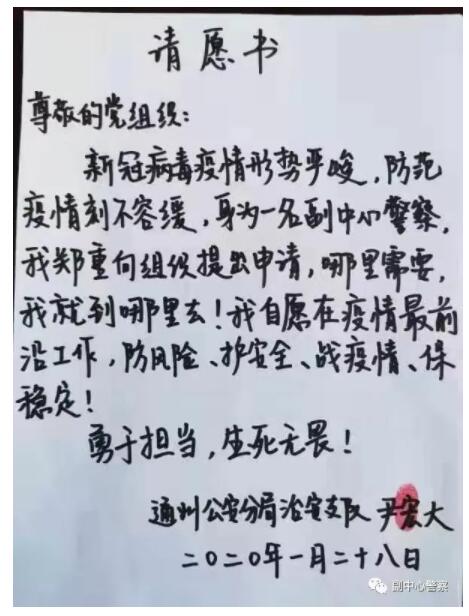 请愿书
尊敬的党组织:
新冠病毒疫情形势严峻,防范
疫情刻不容缓,身为一名副中心警察,
我郑重向组织提出申请,哪里需要,
我就到哪里去!我自愿在疫情最前
沿工作,防风险、护安全、战疫情、保
稳定!
勇于担当,生死无畏!
通州公安分局治安支队 尹宏大
二〇二〇年一月二十八日
副中心警察